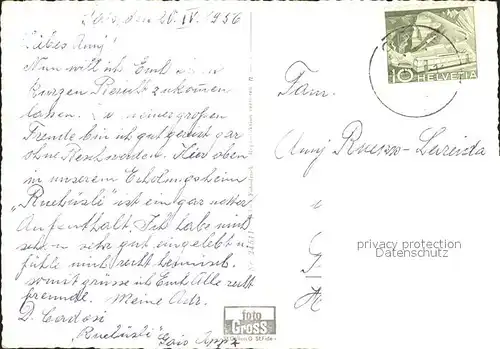 Gais, den 20. IV. 1956
Liebes Anny!
Nun will ich Euch einen
kurzen Bericht zukommen
lassen. Zu meiner großen
Freude bin ich gut gereist gar
ohne Beschwerden. Hier oben
in unserem Erholungsheim
„Ruebüsli" ist ein gar netter
Aufenthalt. Ich habe mich
schon sehr gut eingelebt u.
fühle mich recht heimisch.
somit grüsse ich Euch Alle recht
freunde. Meine Adr.
D. Cordosi
Ruebüsli" Gais App.
foto
GROSS
10 HELVETIA
Fam.
Anny
privacy protection
Datenschutz